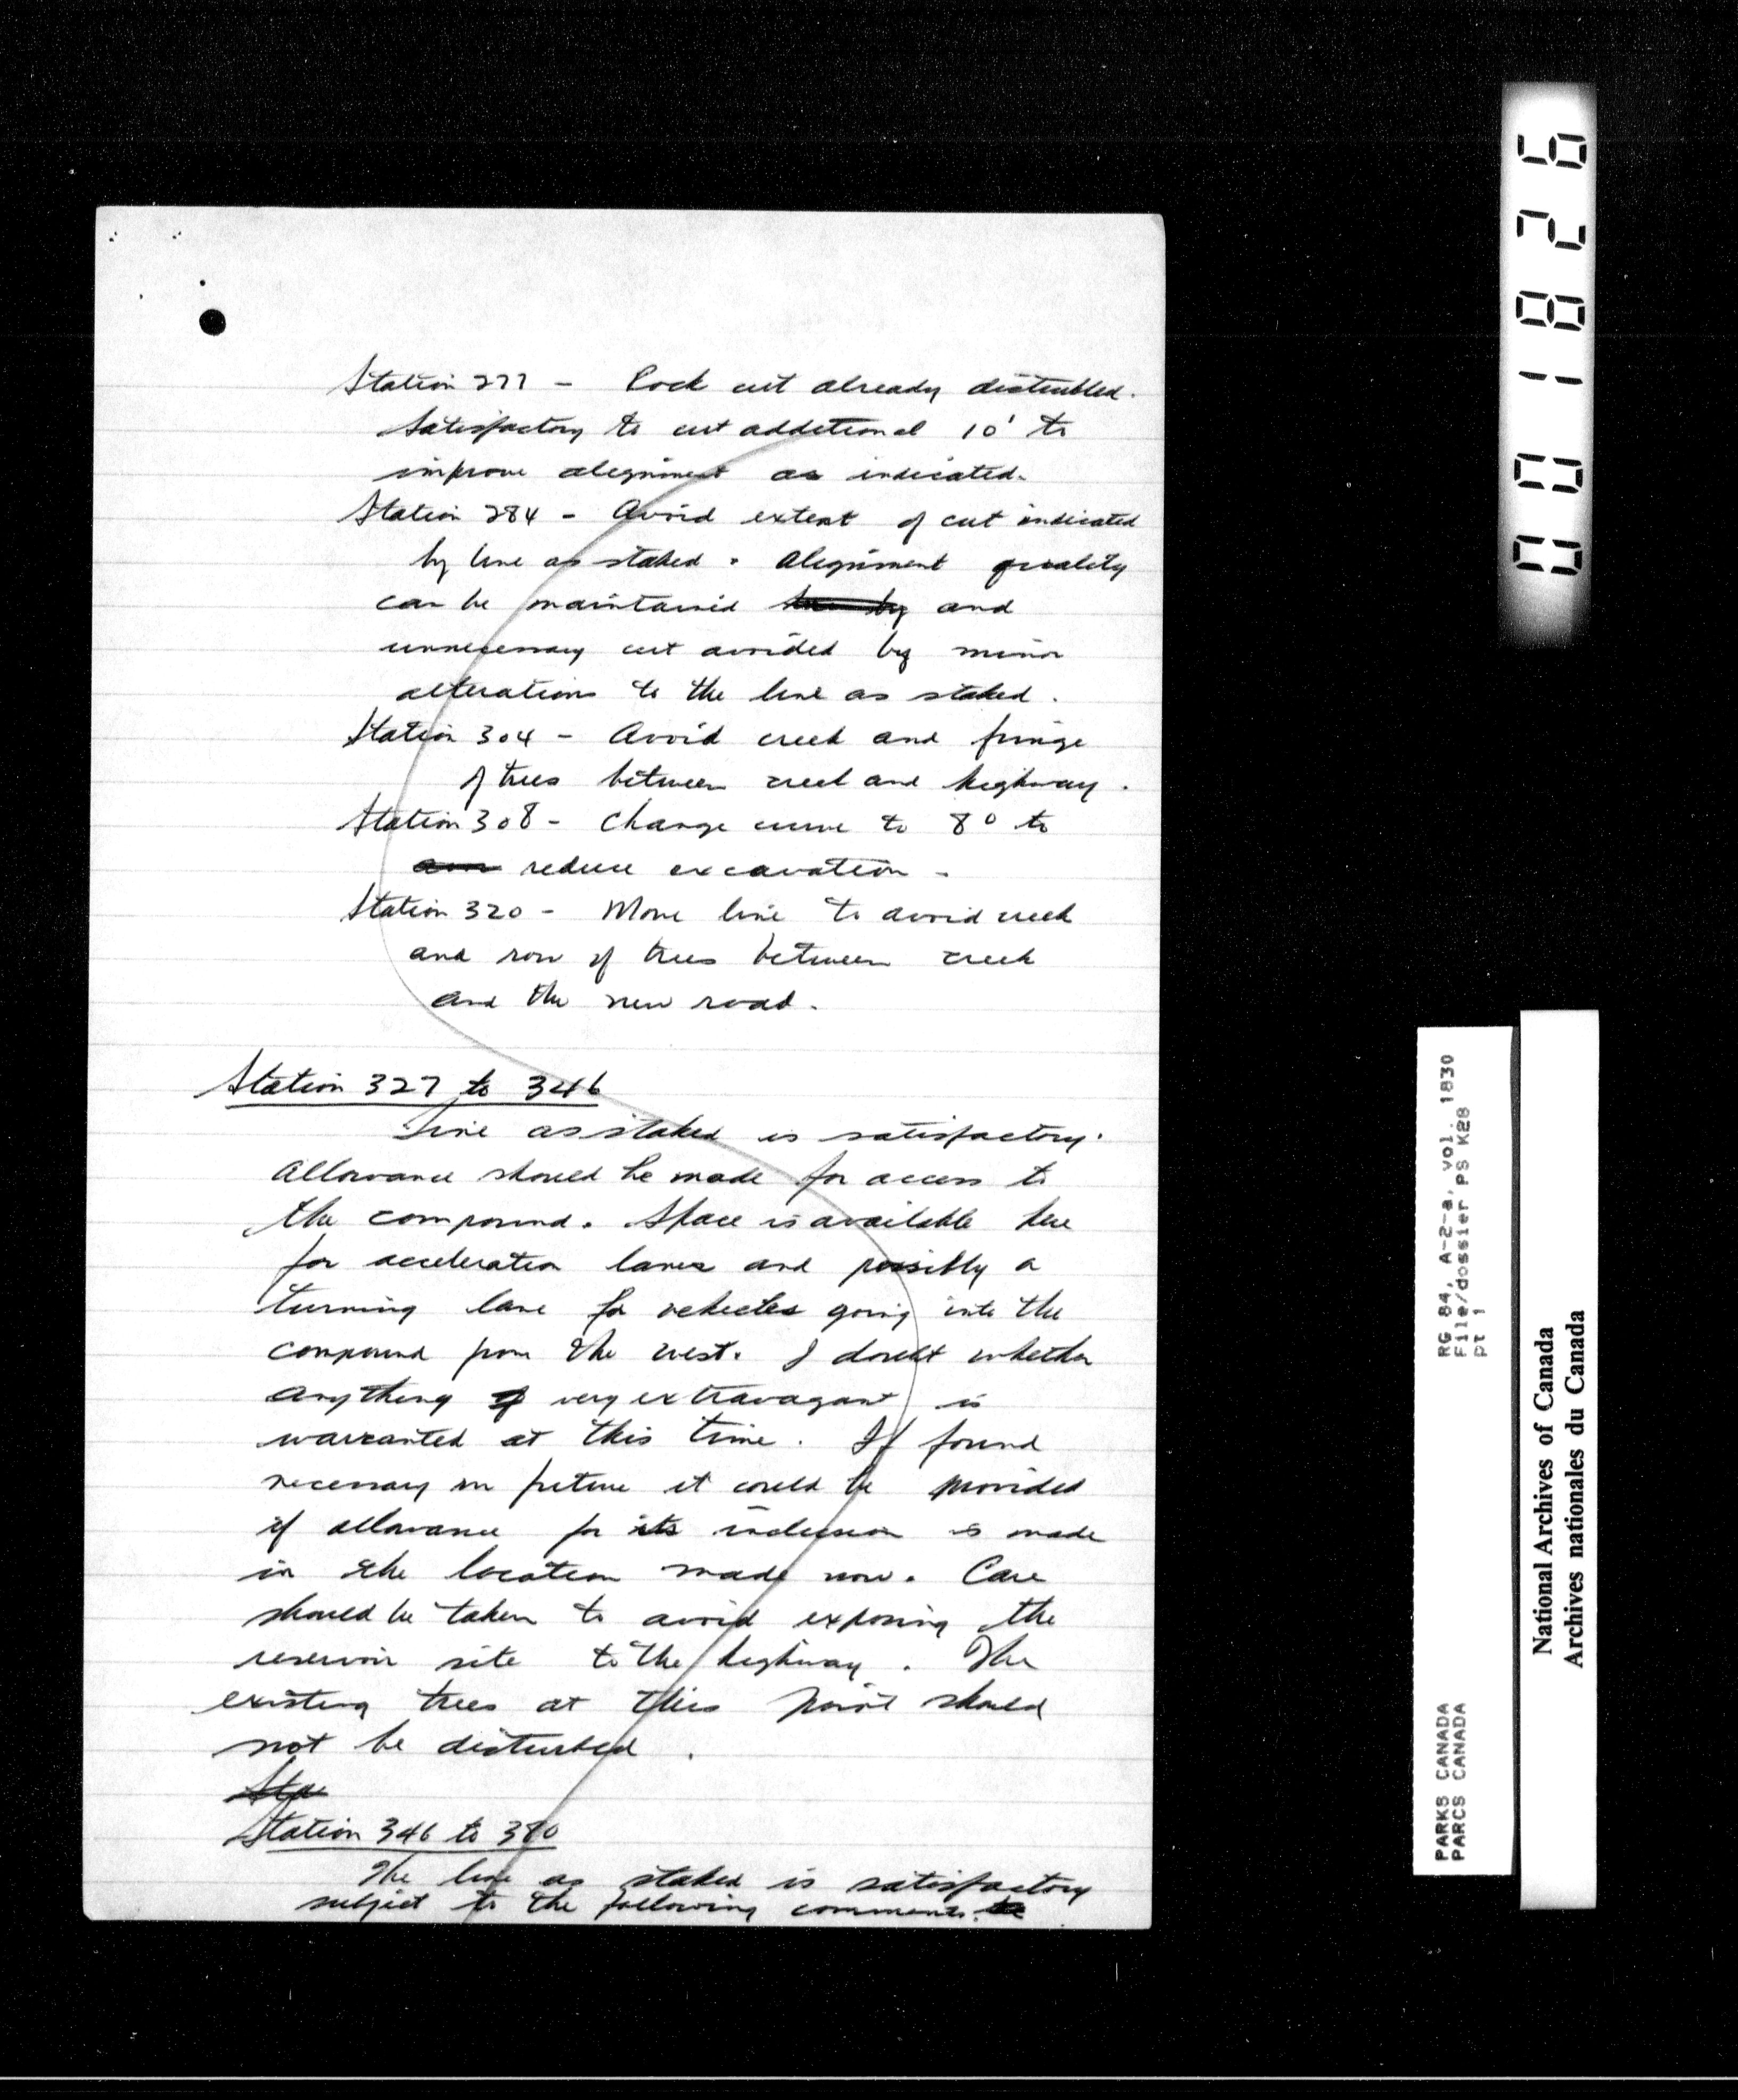 Station 277 - Rock cut already distrubled.
Satisfactory to cut additional 10' to
improve alignment as indicated.
Station 284 - Avoid extent of cut indicated
by line as staked. Alignment quality
can be maintained and
unnecessary cut avoided by minor
alterations to the line as staked.
Station 304 - Avoid creek and fringe
of trees between creek and highway.
Station 308 - Change curve to 8° to
reduce excavation.
Station 320 - Move line to avoid creek
and row of trees between creek
and the new road.
Station 327 to 346
Line as staked is satisfactory.
Allowance should be made for access to
the compound. Space is available here
for acceleration lanes and possibly a
turning lane for vehicles going into the
compound from the west. I doubt whether
anything very extravagant is
warranted at this time. If found
necessary in future it could be provided
if allowance for its inclusion is made
in the location made now. Care
should be taken to avoid exposing the
reservoir site to the highway. The
existing trees at this point should
not be disturbed.
Sta
Station 346 to 380
The line as staked is satisfactory
subject to the following comments.
0001826
RG 84, A-2-a, vol. 1830
File/dossier PS K28
pt 1
PARKS CANADA
PARCS CANADA
National Archives of Canada
Archives nationales du Canada